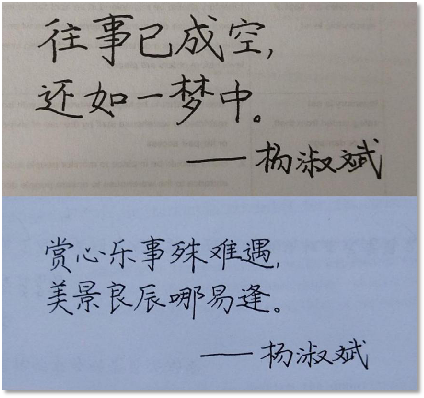 往事已成空，
还如一梦中。
——杨淑斌
赏心乐事殊难遇，
美景良辰哪易逢。
——杨淑斌